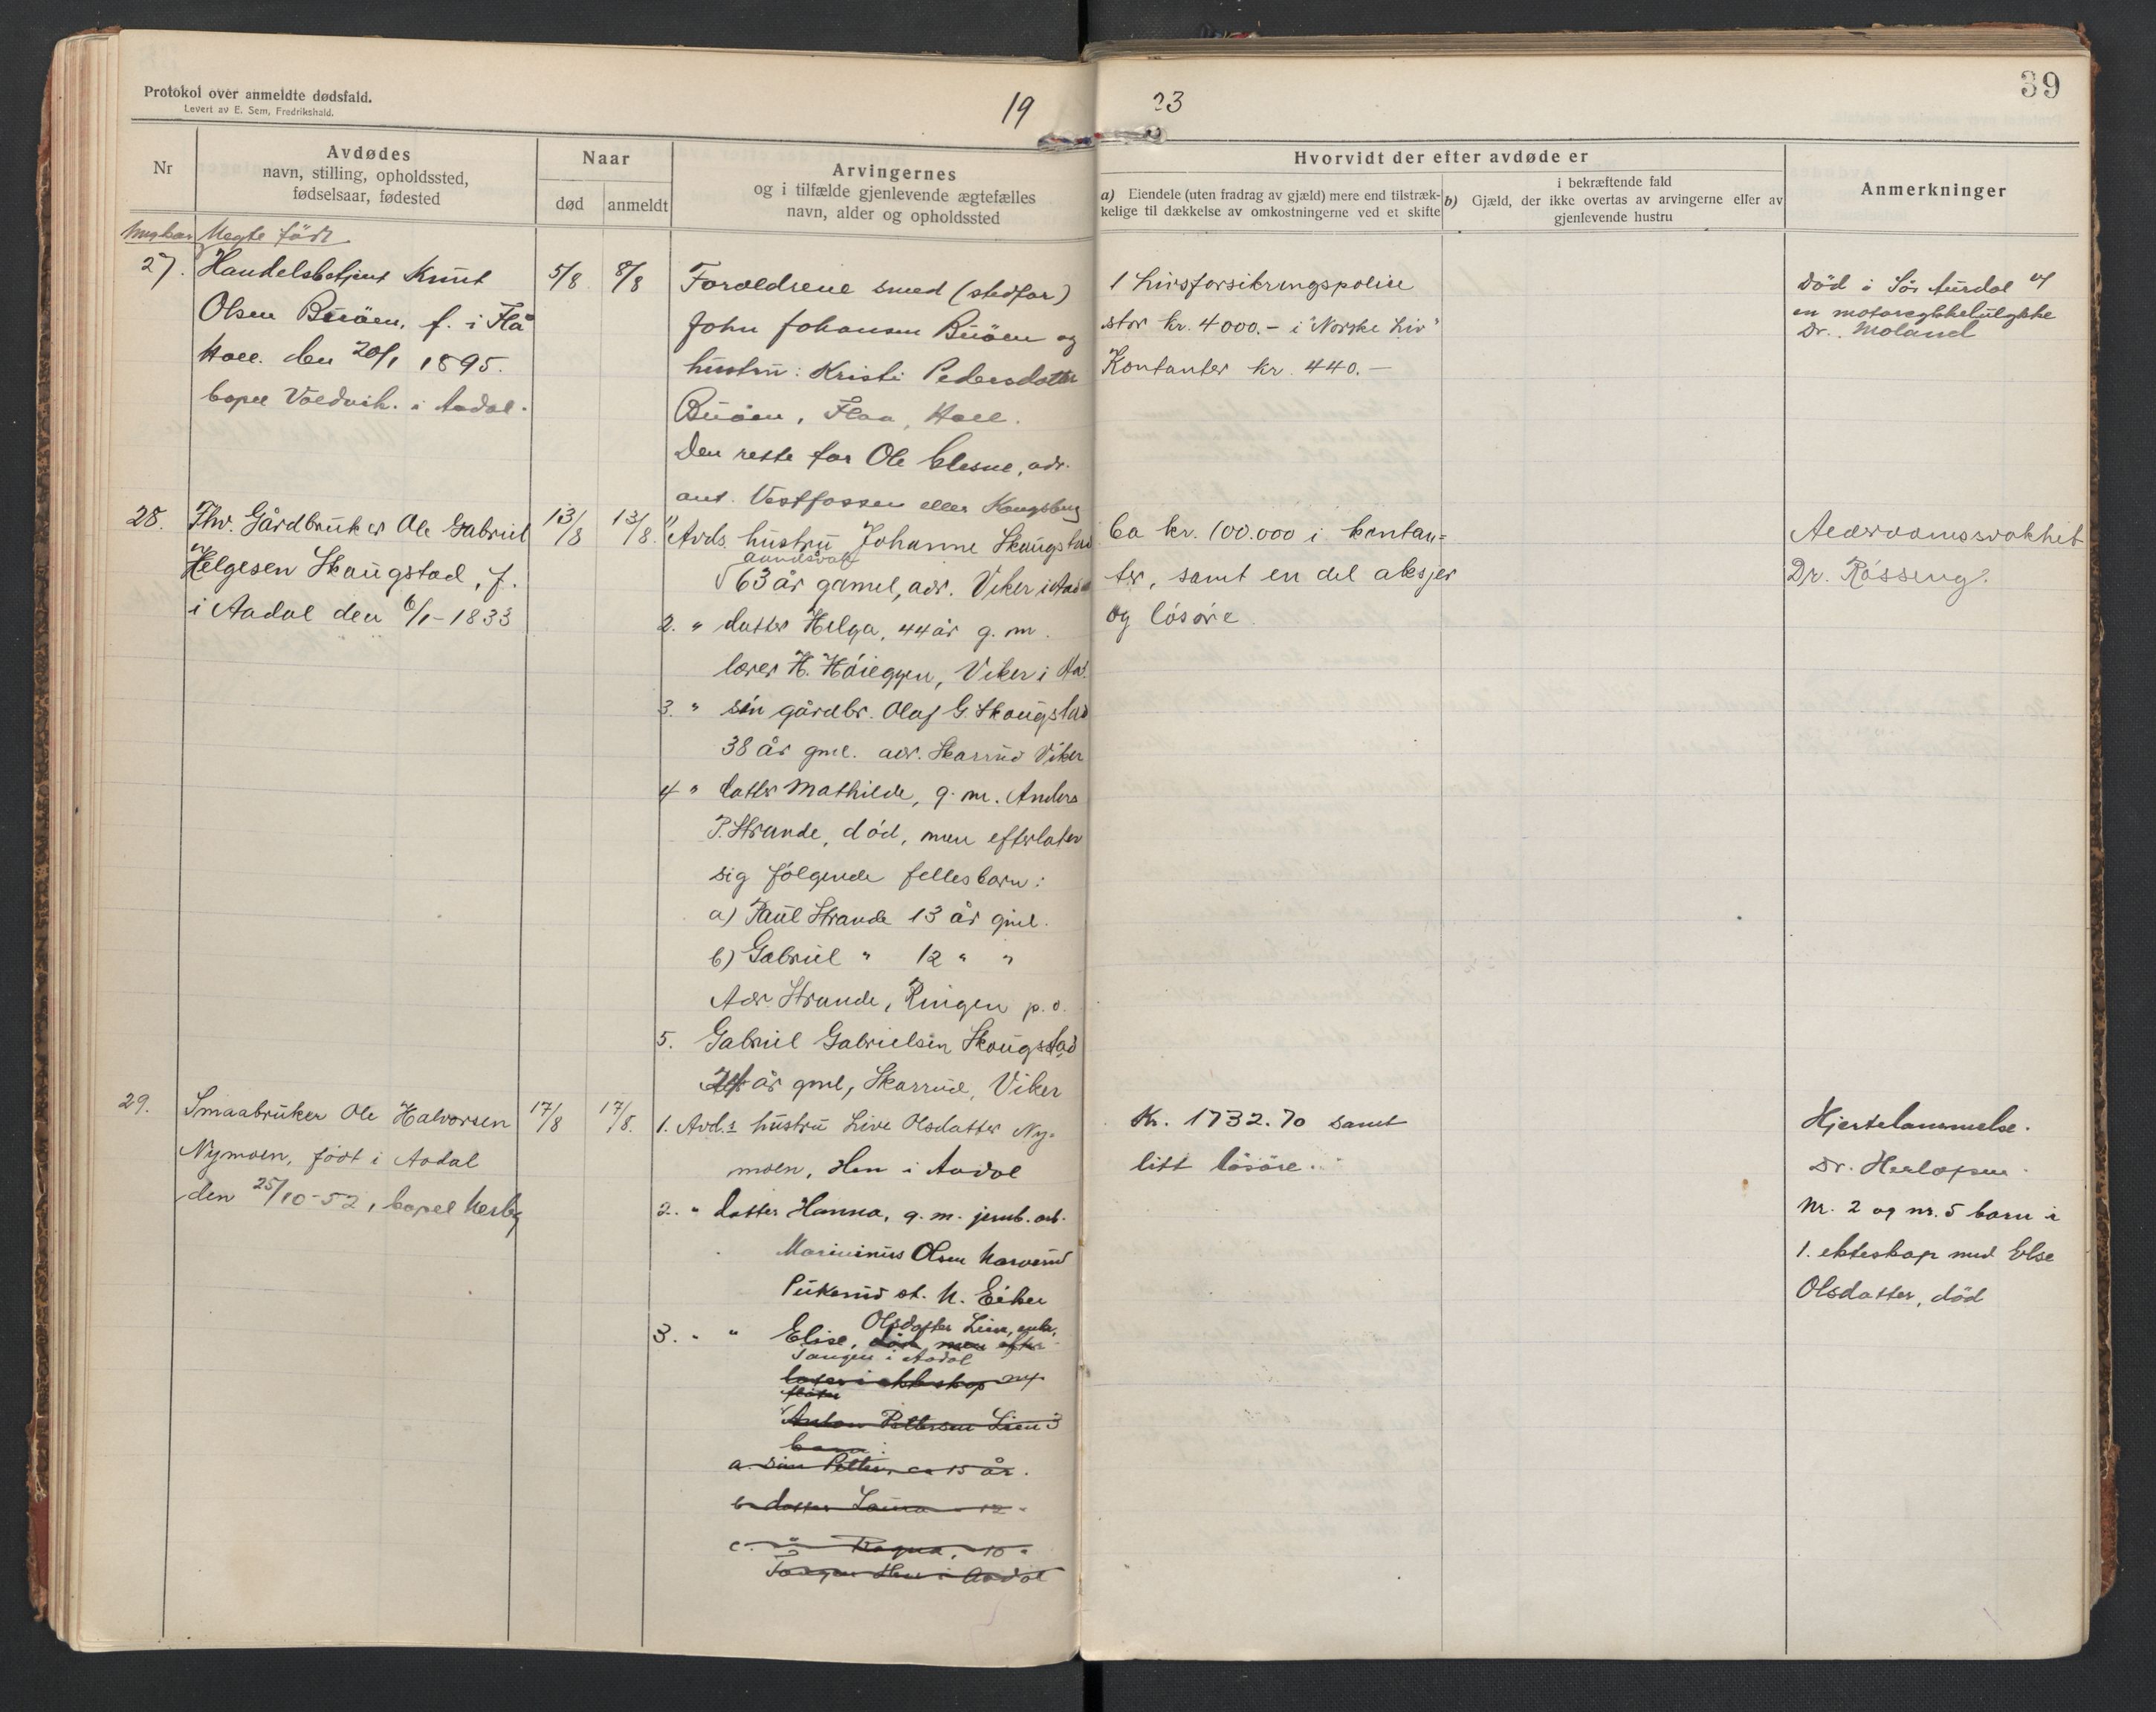 Protokol over anmeldte dødsfald.
Levert av E. Sem, Fredrikshald.
19 23
39
Nr
Avdødes
navn, stilling, opholdssted,
fødselsaar, fødested
Naar
død
anmeldt
Arvingernes
og i tilfælde gjenlevende ægtefælles
navn, alder og opholdssted
Hvorvidt der efter avdøde er
a) Eiendele (uten fradrag av gjæld) mere end tilstræk-
kelige til dækkelse av omkostningerne ved et skifte
i bekræftende fald
b) Gjæld, der ikke overtas av arvingerne eller av
gjenlevende hustru
Anmerkninger
Uegte født
27. Handelsbetjent Knut
Olsen Buöen, f. i Flå
Hall. den 20/1 1895.
bopel i Aadal.
5/8
8/8
Foreldrene smed (stedfar)
John Johansen Buöen og
hustru: Kristi Pedersdatter
Buöen, Flaa, Hall.
Den rette far Ole Elesne, adr.
ant. Vestfossen eller Kongsberg
1 Livsforsikringspolise
stor kr. 4000.- i "Norske Liv"
Kontanter kr. 440.-
Död i Sör Aurdal v/
en motorcykkelulykke
Dr. Moland
28. Fhv. Gårdbruker Ole Gabriel
Helgesen Skaugstad, f.
i Aadal den 6/1-1833
13/8
13/8.
1) Avds. hustru Johanne Skaugstad
aandssvak
63 år gamel, adr. Viker i Aadal
2. " datter Helga, 44 år g. m.
lærer H. Höieggen, Viker i Aad.
3. " sön gårdbr. Olaf G. Skaugstad
38 år gml. adr. Skarrud Viker
4 " datter Mathilde, g. m. Anders
P. Strande, död, men efterlater
sig fölgende fellesbarn:
a) Paul Strande 13 år gml.
b) Gabriel " 12 " "
Adr. Strande, Ringen p.o.
5. Gabriel Gabrielsen Skaugstad
år gml, Skarrud, Viker
Ca kr. 100.000 i kontan=
ter, samt en del aksjer
og lösöre.
Alderdomssvakhet
Dr. Rösseng.
29. Smaabruker Ole Halvorsen
Nymoen, födt i Aadal
den 25/10-52, bopel
17/8
17/8.
1. Avd.s hustru Live Olsdatter Ny-
moen, Hen i Aadal
2. " datter Hanna, g. m. jernb. arb.
Olsen
st. N. Eiker
3. " " Elise, Olsdatter Lien, enke,
död men efter-
Tangen i Aadal
later i ekteskap m/
Anton Pettersen Lien 3
barn:
a. sön Petter, ca 15 år.
b. datter Laura 12 "
c. " Ragna, 10 "
Tangen Hen i Aadal
Kr. 1732.70 samt
litt lösöre.
Hjertelammelse.
Dr. Herlofsen
Nr. 2 og nr. 5 barn i
1. ekteskap med Else
Olsdatter, död